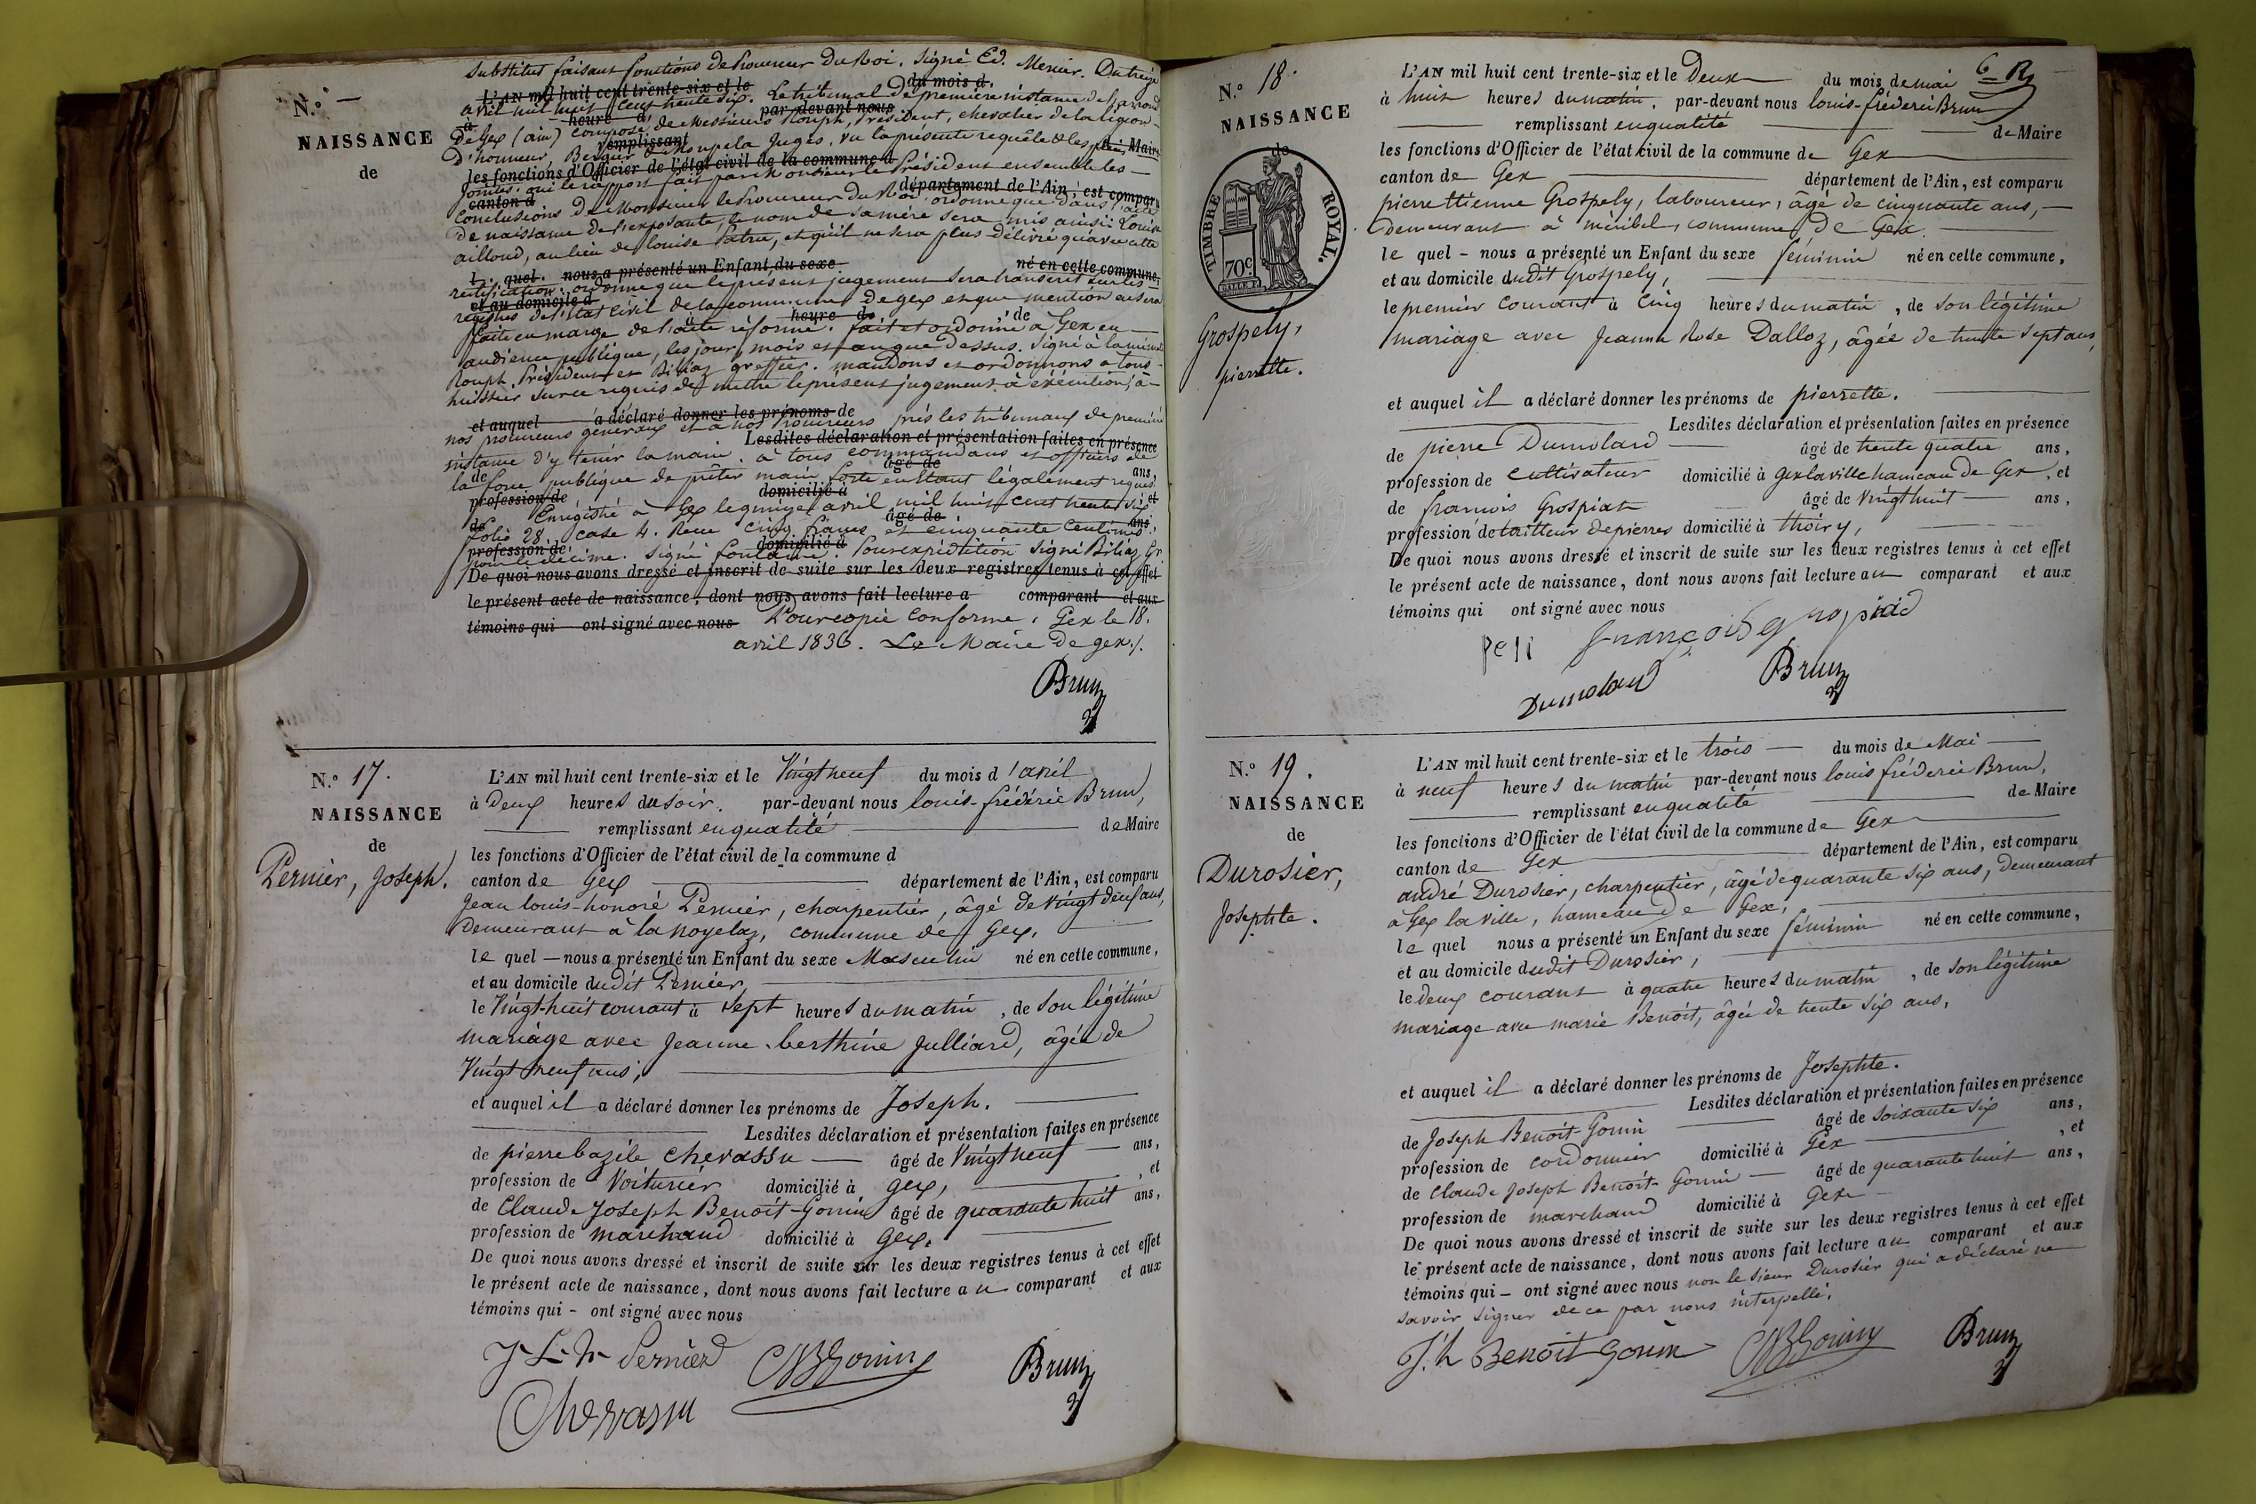 substitut faisant fonctions de Procureur du Roi. Signé Ed. Mercier. Du treize
N.° —
L'AN mil huit cent trente-six et le
du mois d
avril mil huit cent trente six. Le tribunal de première instance de
heure d
par-devant nous
NAISSANCE
de Gex (ain) composé de Messieurs Rouph, Président, chevalier de la légion
remplissant
de Maire
d'honneur, Juges, vu la présente requête et les pièces
de
les fonctions d'Officier de l'état civil de la commune d
jointes; oui le rapport fait par Monsieur le Président ensemble les —
canton d
département de l'Ain, est comparu
conclusions de Monsieur le Procureur du Roi ordonne que dans l'acte
de naissance de l'exposante, le nom de sa mère sera mis ainsi: Louise
ailloud, au lieu de louise et qu'il ne sera plus délivré qu'avec cette
l quel nous a présenté un Enfant du sexe
né en cette commune,
rectification; ordonne que le présent jugement sera transcrit sur les
et au domicile d
registres de l'état civil de la commune de gex et que mention en sera
heure d
, de
faite en marge de l'acte réformé. fait et ordonné à Gex en —
audience publique, les jour, mois et an que dessus. Signé à la minute
Rouph Président et Billiaz greffier. mandons et ordonnons à tous
huissier sur ce requis de mettre le présent jugement à exécution, à
et auquel a déclaré donner les prénoms de
nos procureurs généraux et à nos Procureurs près les tribunaux de première
Lesdites déclaration et présentation faites en présence
instance d'y tenir la main. à tous commandans et officiers de
de
âgé de
ans,
la force publique de prêter main forte en étant légalement requis
profession de
domicilié à
et
Enregistré à Gex le quinze avril mil huit cent trente six
de
âgé de
ans,
folio 28. case 4. Reçu cinq francs et cinquante centimes
profession de
domicilié à
pour le décime. Signé Pour expédition Signé Billiaz Gr
De quoi nous avons dressé et inscrit de suite sur les deux registres tenus à cet effet
le présent acte de naissance, dont nous avons fait lecture a comparant et aux
témoins qui ont signé avec nous Pour copie conforme, Gex le 18.
avril 1836. Le Maire de gex./.
Brun
N.° 17.
NAISSANCE
de
Pernier, Joseph.
L'AN mil huit cent trente-six et le Vingt neuf du mois d'avril
à Deux heures du soir. par-devant nous louis-frédéric Brun,
remplissant en qualité de Maire
les fonctions d'Officier de l'état civil de la commune d
canton de Gex département de l'Ain, est comparu
Jean louis-honoré Pernier, charpentier, âgé de vingt neuf ans,
demeurant à la noyelaz, commune de Gex.
le quel — nous a présenté un Enfant du sexe Masculin né en cette commune,
et au domicile dudit Pernier,
le Vingt-huit courant à sept heures du matin, de son légitime
mariage avec Jeanne berthine Julliard, âgée de
Vingt neuf ans,
et auquel il a déclaré donner les prénoms de Joseph.
Lesdites déclaration et présentation faites en présence
de pierre bazile Chevassu — âgé de Vingt neuf — ans,
profession de Voiturier domicilié à gex, , et
de Claude Joseph Benoit-Gonin âgé de quarante huit ans,
profession de marchand domicilié à gex.
De quoi nous avons dressé et inscrit de suite sur les deux registres tenus à cet effet
le présent acte de naissance, dont nous avons fait lecture au comparant et aux
témoins qui - ont signé avec nous
J. L. h. Pernier CJBGonin Brun
Chevassu
6 R
N.° 18.
NAISSANCE
de
TIMBRE ROYAL.
70c.
Grospely,
pierrette.
L'AN mil huit cent trente-six et le Deux du mois de mai
à huit heures du matin. par-devant nous louis-fréderic Brun
remplissant en qualité de Maire
les fonctions d'Officier de l'état civil de la commune de Gex
canton de Gex département de l'Ain, est comparu
pierre ttienne Grospely, laboureur, âgé de cinquante ans, —
demeurant à miribel, commune de Gex.
le quel - nous a présenté un Enfant du sexe féminin né en cette commune,
et au domicile dudit Grospely,
le premier courant à Cinq heures du matin, de son légitime
mariage avec Jeanne Rose Dalloz, âgée de trente sept ans,
et auquel il a déclaré donner les prénoms de pierrette.
Lesdites déclaration et présentation faites en présence
de pierre Dumolard âgé de trente quatre ans,
profession de cultivateur domicilié à gex la ville hameau de Gex, et
de francois Grospiat âgé de vingt huit — ans,
profession de tailleur de pierres domicilié à thoiry,
De quoi nous avons dressé et inscrit de suite sur les deux registres tenus à cet effet
le présent acte de naissance, dont nous avons fait lecture au comparant et aux
témoins qui ont signé avec nous
françois
Dumolard Brun
N.° 19.
NAISSANCE
de
Durosier,
Josephte.
L'AN mil huit cent trente-six et le trois — du mois de Mai —
à neuf heures du matin par-devant nous louis fréderic Brun,
remplissant en qualité de Maire
les fonctions d'Officier de l'état civil de la commune de Gex
canton de Gex département de l'Ain, est comparu
andré Durosier, charpentier, âgé de quarante six ans, demeurant
à Gex la ville, hameau de Gex,
le quel nous a présenté un Enfant du sexe féminin né en cette commune,
et au domicile dudit Durosier,
le deux courant à quatre heures du matin, de son légitime
mariage avec marie Benoit, âgée de trente six ans,
et auquel il a déclaré donner les prénoms de Josephte.
Lesdites déclaration et présentation faites en présence
de Joseph Benoit Gonin âgé de soixante six ans,
profession de cordonnier domicilié à Gex , et
de Claude Joseph Benoit-Gonin — âgé de quarante huit ans,
profession de marchand domicilié à Gex
De quoi nous avons dressé et inscrit de suite sur les deux registres tenus à cet effet
le présent acte de naissance, dont nous avons fait lecture au comparant et aux
témoins qui — ont signé avec nous non le sieur Durosier qui a déclaré ne
savoir signer de ce par nous interpellé.
J.h Benoit Gonin CJBGonin Brun